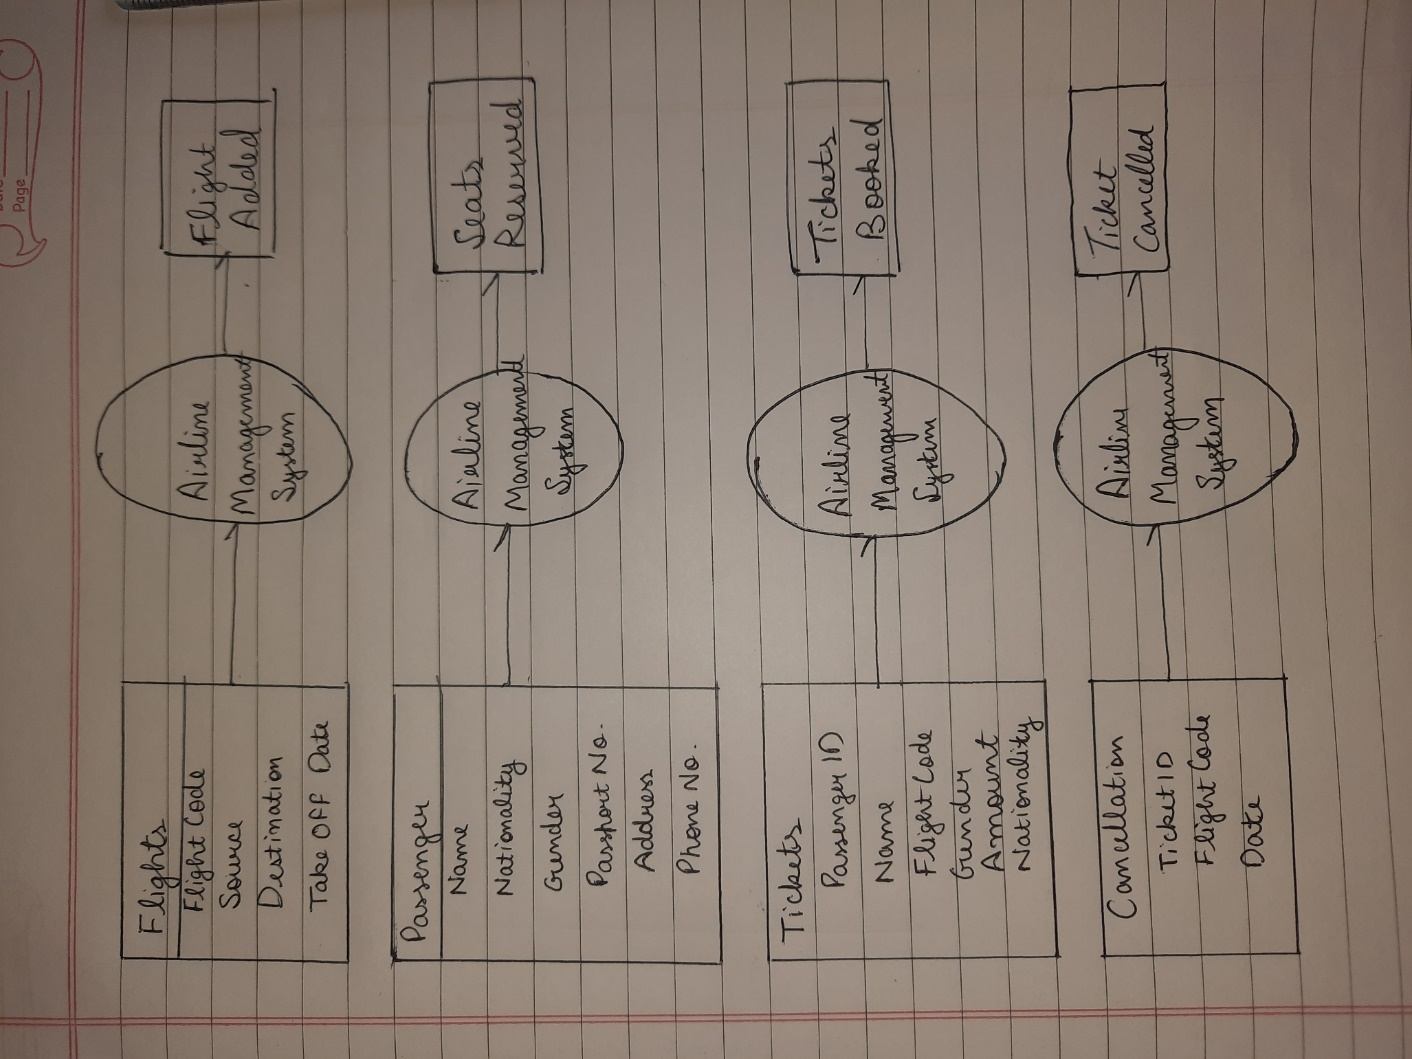 Page
Flights
Flight Code
Source
Destination
Take Off Date
Airline
Management
System
Flight
Added
Passenger
Name
Nationality
Gender
Passport No.
Address
Phone No.
Airline
Management
System
Seats
Reserved
Tickets
Passenger ID
Name
Flight Code
Gender
Amount
Nationality
Airline
Management
System
Tickets
Booked
Cancellation
Ticket ID
Flight Code
Date
Airline
Management
System
Ticket
Cancelled